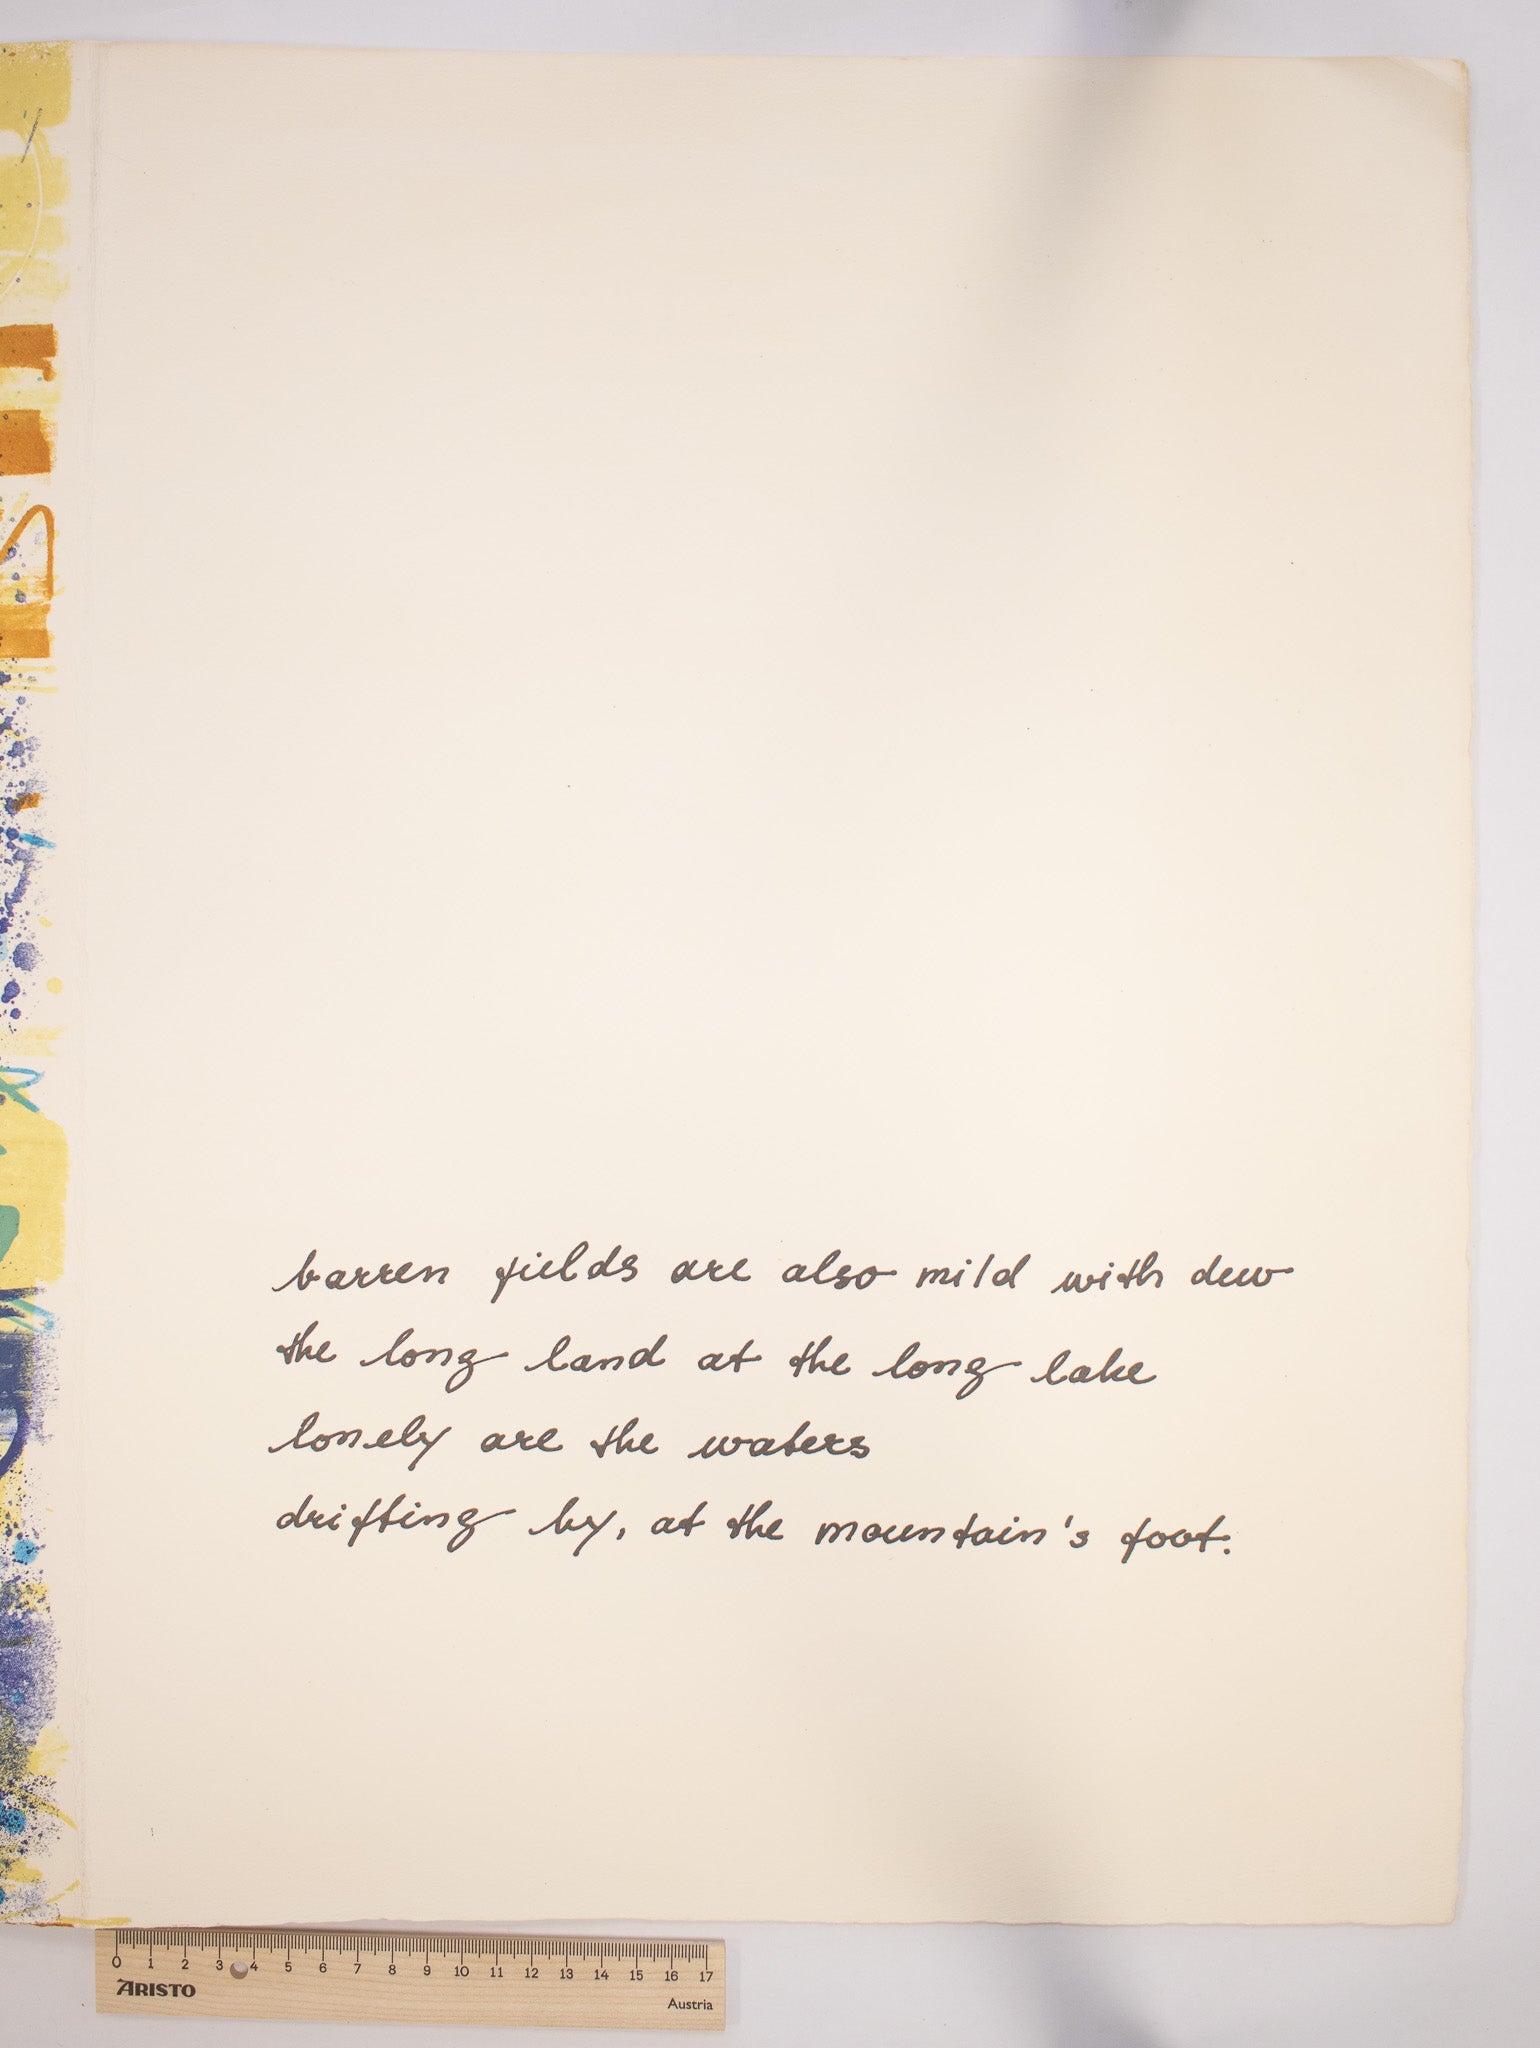 barren fields are also mild with dew
the long land at the long lake
lonely are the waters
drifting by, at the mountain's foot.
0 1 2 3 4 5 6 7 8 9 10 11 12 13 14 15 16 17
ARISTO
Austria